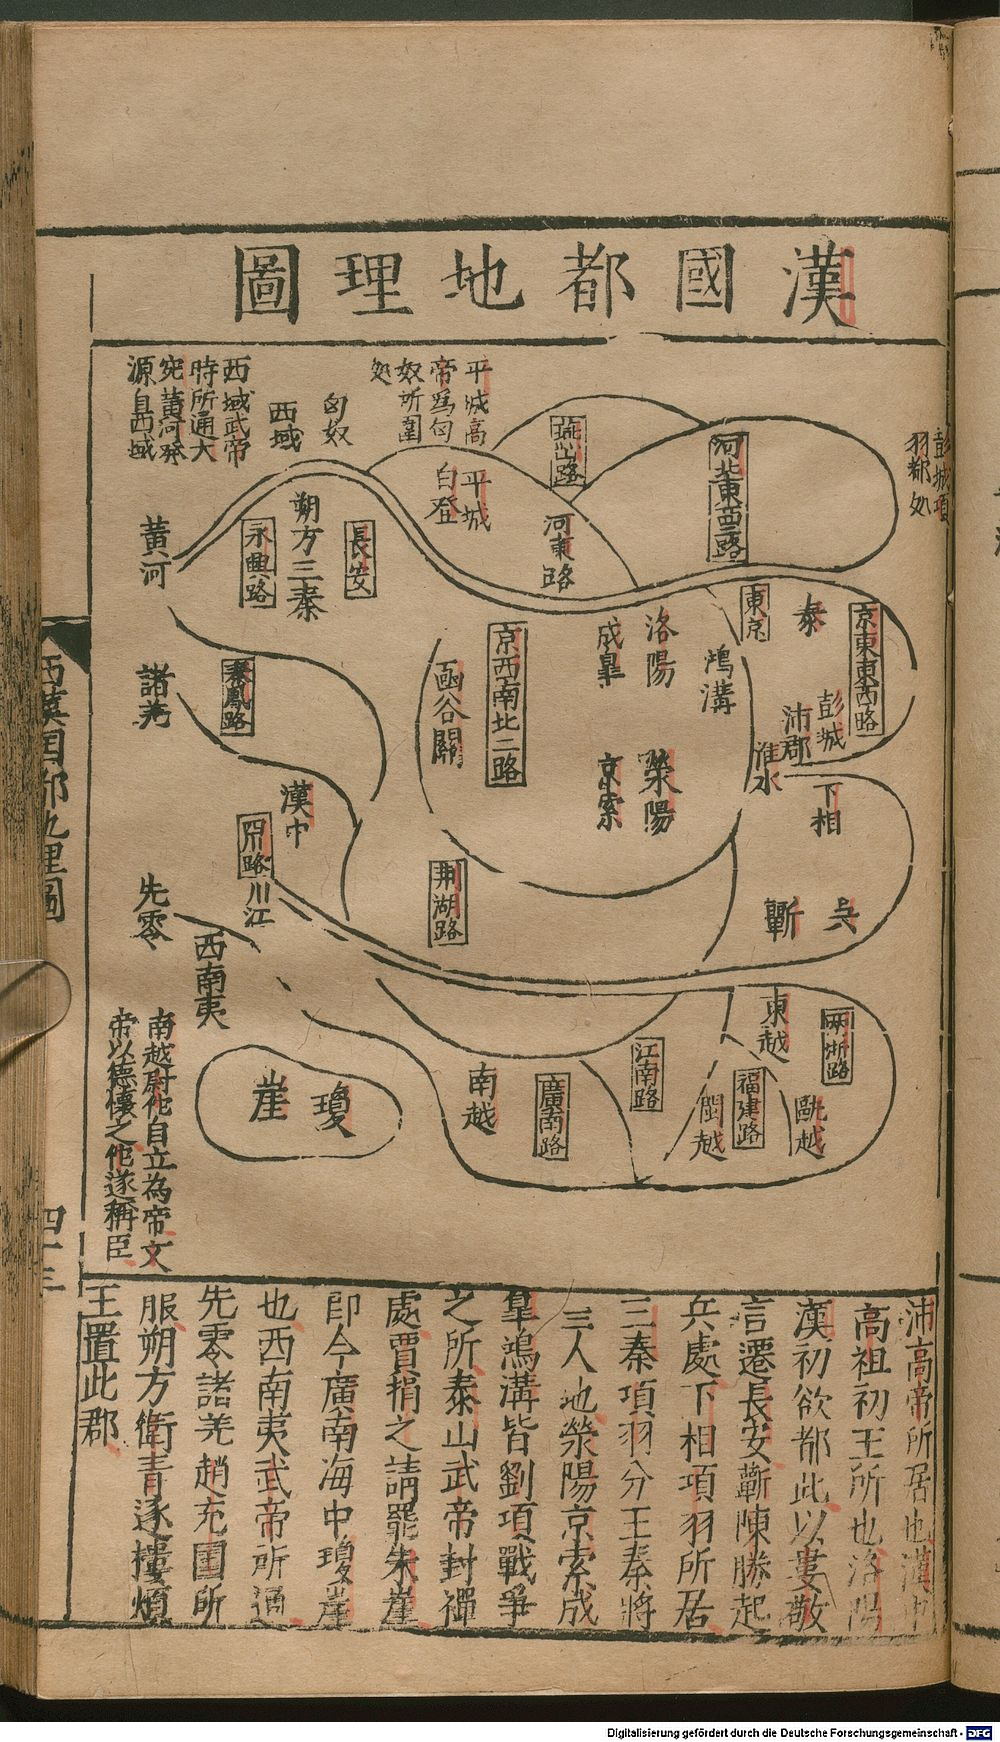 漢國都地理圖
彭城項
羽都処
平城高
帝爲匈
奴所圍
処
匈奴
西域
西域武帝
時所通大
宛黄河發
源自西域
燕山路
河北東西二路
平城
白登
河東路
長安
朔方三秦
永興路
黄河
京東東西路
泰
東京
彭城
沛郡
淮水
鴻溝
洛陽
成皐
京西南北二路
函谷關
秦鳳路
諸羌
滎陽
京索
下相
漢中
川江
荆湖路
吳
蘄
先零
西南夷
兩浙路
東越
甌越
福建路
閩越
江南路
廣南路
南越
瓊
崖
南越尉佗自立為帝文
帝以德懷之佗遂稱臣
沛高帝所居也漢中
高祖初王所也洛陽
漢初欲都此以婁敬
言遷長安蘄陳勝起
兵處下相項羽所居
三秦項羽分王秦將
三人地滎陽京索成
皐鴻溝皆劉項戰爭
之所泰山武帝封禪
處賈捐之請罷朱崖
即今廣南海中瓊崖
也西南夷武帝所通
先零諸羌趙充國所
服朔方衛青逐樓煩
王置此郡
四十三
Digitalisierung gefördert durch die Deutsche Forschungsgemeinschaft - DFG